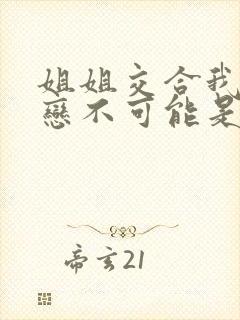 姐姐交合我
戀不可能是
帝玄21